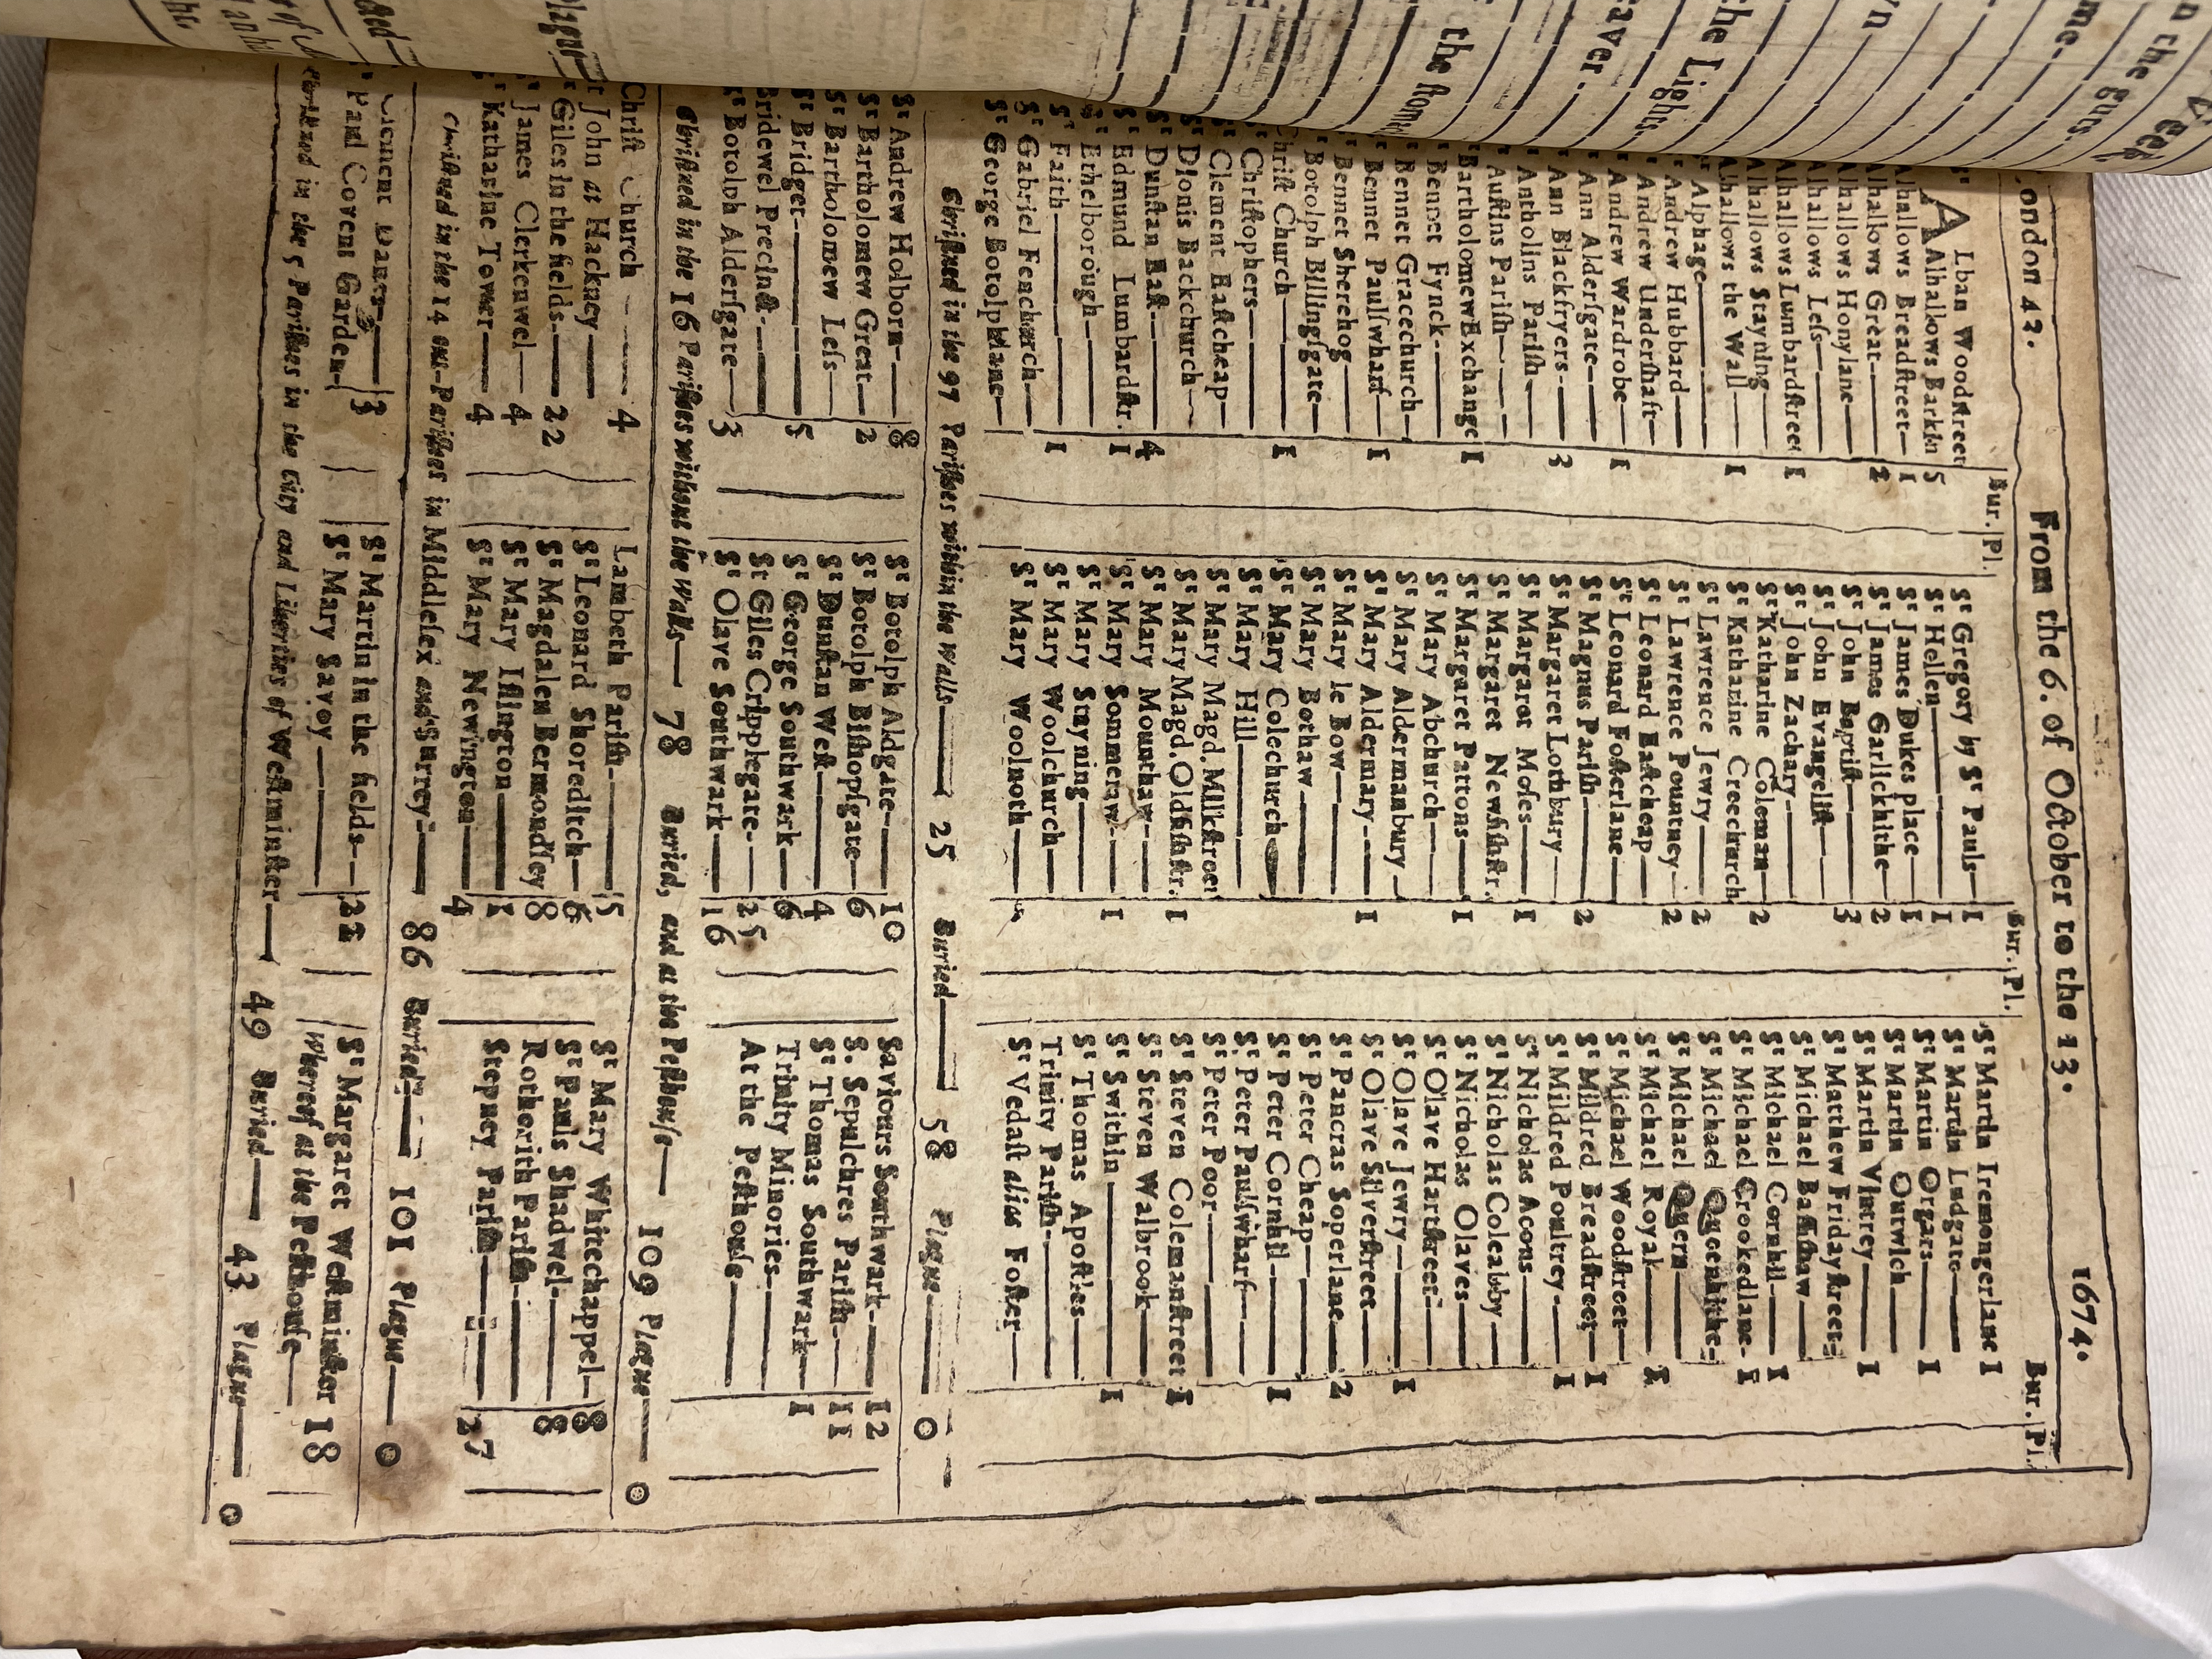 ondon 42. From the 6. of October to the 13. 1674.
Bur. Pl. Bur. Pl. Bur. Pl.
St ALban Woodstreet
Alhallows Barkin 5
lhallows Breadstreet— 1
lhallows Great— 2
lhallows Honylane—
lhallows Less—
lhallows Lumbardstreet 1
lhallows Stayning
lhallows the Wall— 1
Alphage—
Andrew Hubbard—
Andrew Undershaft—
Andrew Wardrobe— 1
Ann Aldersgate—
Ann Blackfryers— 3
Antholins Parish—
Austins Parish—
Bartholomew Exchange 1
Bennet Fynck—
Bennet Gracechurch—
Bennet Paulswharf— 1
Bennet Sherehog—
Botolph Billingsgate—
hrist Church— 1
Christophers—
Clement Eastcheap—
Dionis Backchurch—
Dunstan East— 4
Edmund Lumbardstr. 1
Ethelborough—
St Faith— 1
St Gabriel Fenchurch—
St George Botolphlane—
St Gregory by St Pauls— 1
St Hellen— 1
St James Dukes place— 1
St James Garlickhithe— 2
St John Baptist— 3
St John Evangelist—
St John Zachary—
St Katharine Coleman— 2
St Katharine Creechurch
St Lawrence Jewry— 2
St Lawrence Pountney— 2
St Leonard Eastcheap—
St Leonard Fosterlane—
St Magnus Parish— 2
St Margaret Lothbury—
St Margaret Moses— 1
St Margaret Newfishstr.
St Margaret Pattons— 1
St Mary Abchurch—
St Mary Aldermanbury—
St Mary Aldermary— 1
St Mary le Bow—
St Mary Bothaw—
St Mary Colechurch—
St Mary Hill—
St Mary Magd. Milkstreet
St Mary Magd. Oldfishstr. 1
St Mary Mounthaw—
St Mary Sommerset— 1
St Mary Stayning—
St Mary Woolchurch—
St Mary Woolnoth—
St Martin Iremongerlane 1
St Martin Ludgate—
St Martin Orgars— 1
St Martin Outwich—
St Martin Vintrey— 1
St Matthew Fridaystreet—
St Michael Bassishaw—
St Michael Cornhil— 1
St Michael Crookedlane— 1
St Michael Queenhithe—
St Michael Quern—
St Michael Royal— 1
St Michael Woodstreet—
St Mildred Breadstreet— 1
St Mildred Poultrey— 1
St Nicholas Acons—
St Nicholas Coleabby—
St Nicholas Olaves—
St Olave Hartstreet—
St Olave Jewry— 1
St Olave Silverstreet—
St Pancras Soperlane— 2
St Peter Cheap—
St Peter Cornhil— 1
St Peter Paulswharf—
St Peter Poor—
St Steven Colemanstreet 1
St Steven Walbrook—
St Swithin— 1
St Thomas Apostles—
Trinity Parish—
St Vedast alias Foster—
Christned in the 97 Parishes within the Walls— 25 Buried— 58 Plague— 0
St Andrew Holborn— 8
St Bartholomew Great— 2
St Bartholomew Less—
St Bridget— 5
Bridewel Precinct—
St Botolph Aldersgate— 3
St Botolph Aldgate— 10
St Botolph Bishopsgate— 6
St Dunstan West— 4
St George Southwark— 6
St Giles Cripplegate— 25
St Olave Southwark— 16
Saviours Southwark— 12
S. Sepulchres Parish— 11
St Thomas Southwark— 1
Trinity Minories—
At the Pesthouse—
Christned in the 16 Parishes without the Walls— 78 Buried, and at the Pesthouse— 109 Plague— 0
Christ Church— 4
John at Hackney—
St Giles in the fields— 22
St James Clerkenwel— 4
St Katharine Tower— 4
Lambeth Parish— 5
St Leonard Shoreditch— 6
St Magdalen Bermondsey 8
St Mary Islington— 1
St Mary Newington— 4
St Mary Whitechappel— 8
St Pauls Shadwel— 8
Rotherith Parish—
Stepney Parish— 27
Christned in the 14 out-Parishes in Middlesex and Surrey— 86 Buried— 101 Plague— 0
Clement Danes— 3
St Paul Covent Garden—
St Martin in the fields— 22
St Mary Savoy—
St Margaret Westminster 18
Whereof at the Pesthouse—
Christned in the 5 Parishes in the City and Liberties of Westminster— 49 Buried— 43 Plague— 0
n the guts
me—
n
the Lights
aver.
the stomac
Plague